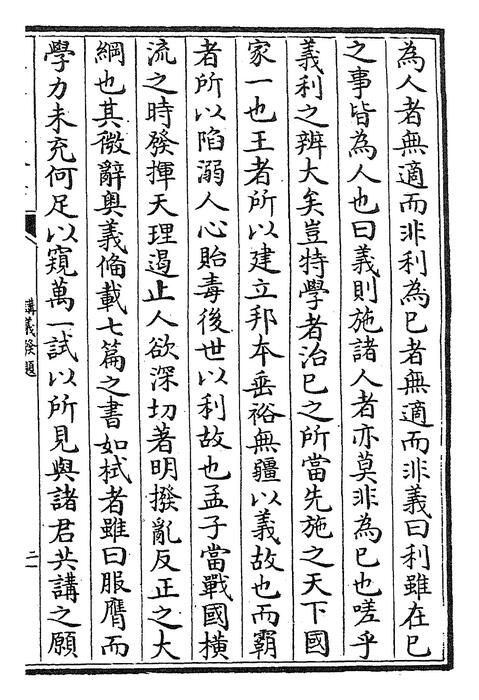 為人者無適而非利為已者無適而非義曰利雖在已
之事皆為人也曰義則施諸人者亦莫非為已也嗟乎
義利之辨大矣豈特學者治已之所當先施之天下國
家一也王者所以建立邦本垂裕無疆以義故也而霸
者所以陷溺人心貽毒後世以利故也孟子當戰國橫
流之時發揮天理遏止人欲深切著明撥亂反正之大
綱也其微辭奥義備載七篇之書如栻者雖曰服膺而
學力未充何足以窺萬一試以所見與諸君共講之願
講義發題
二